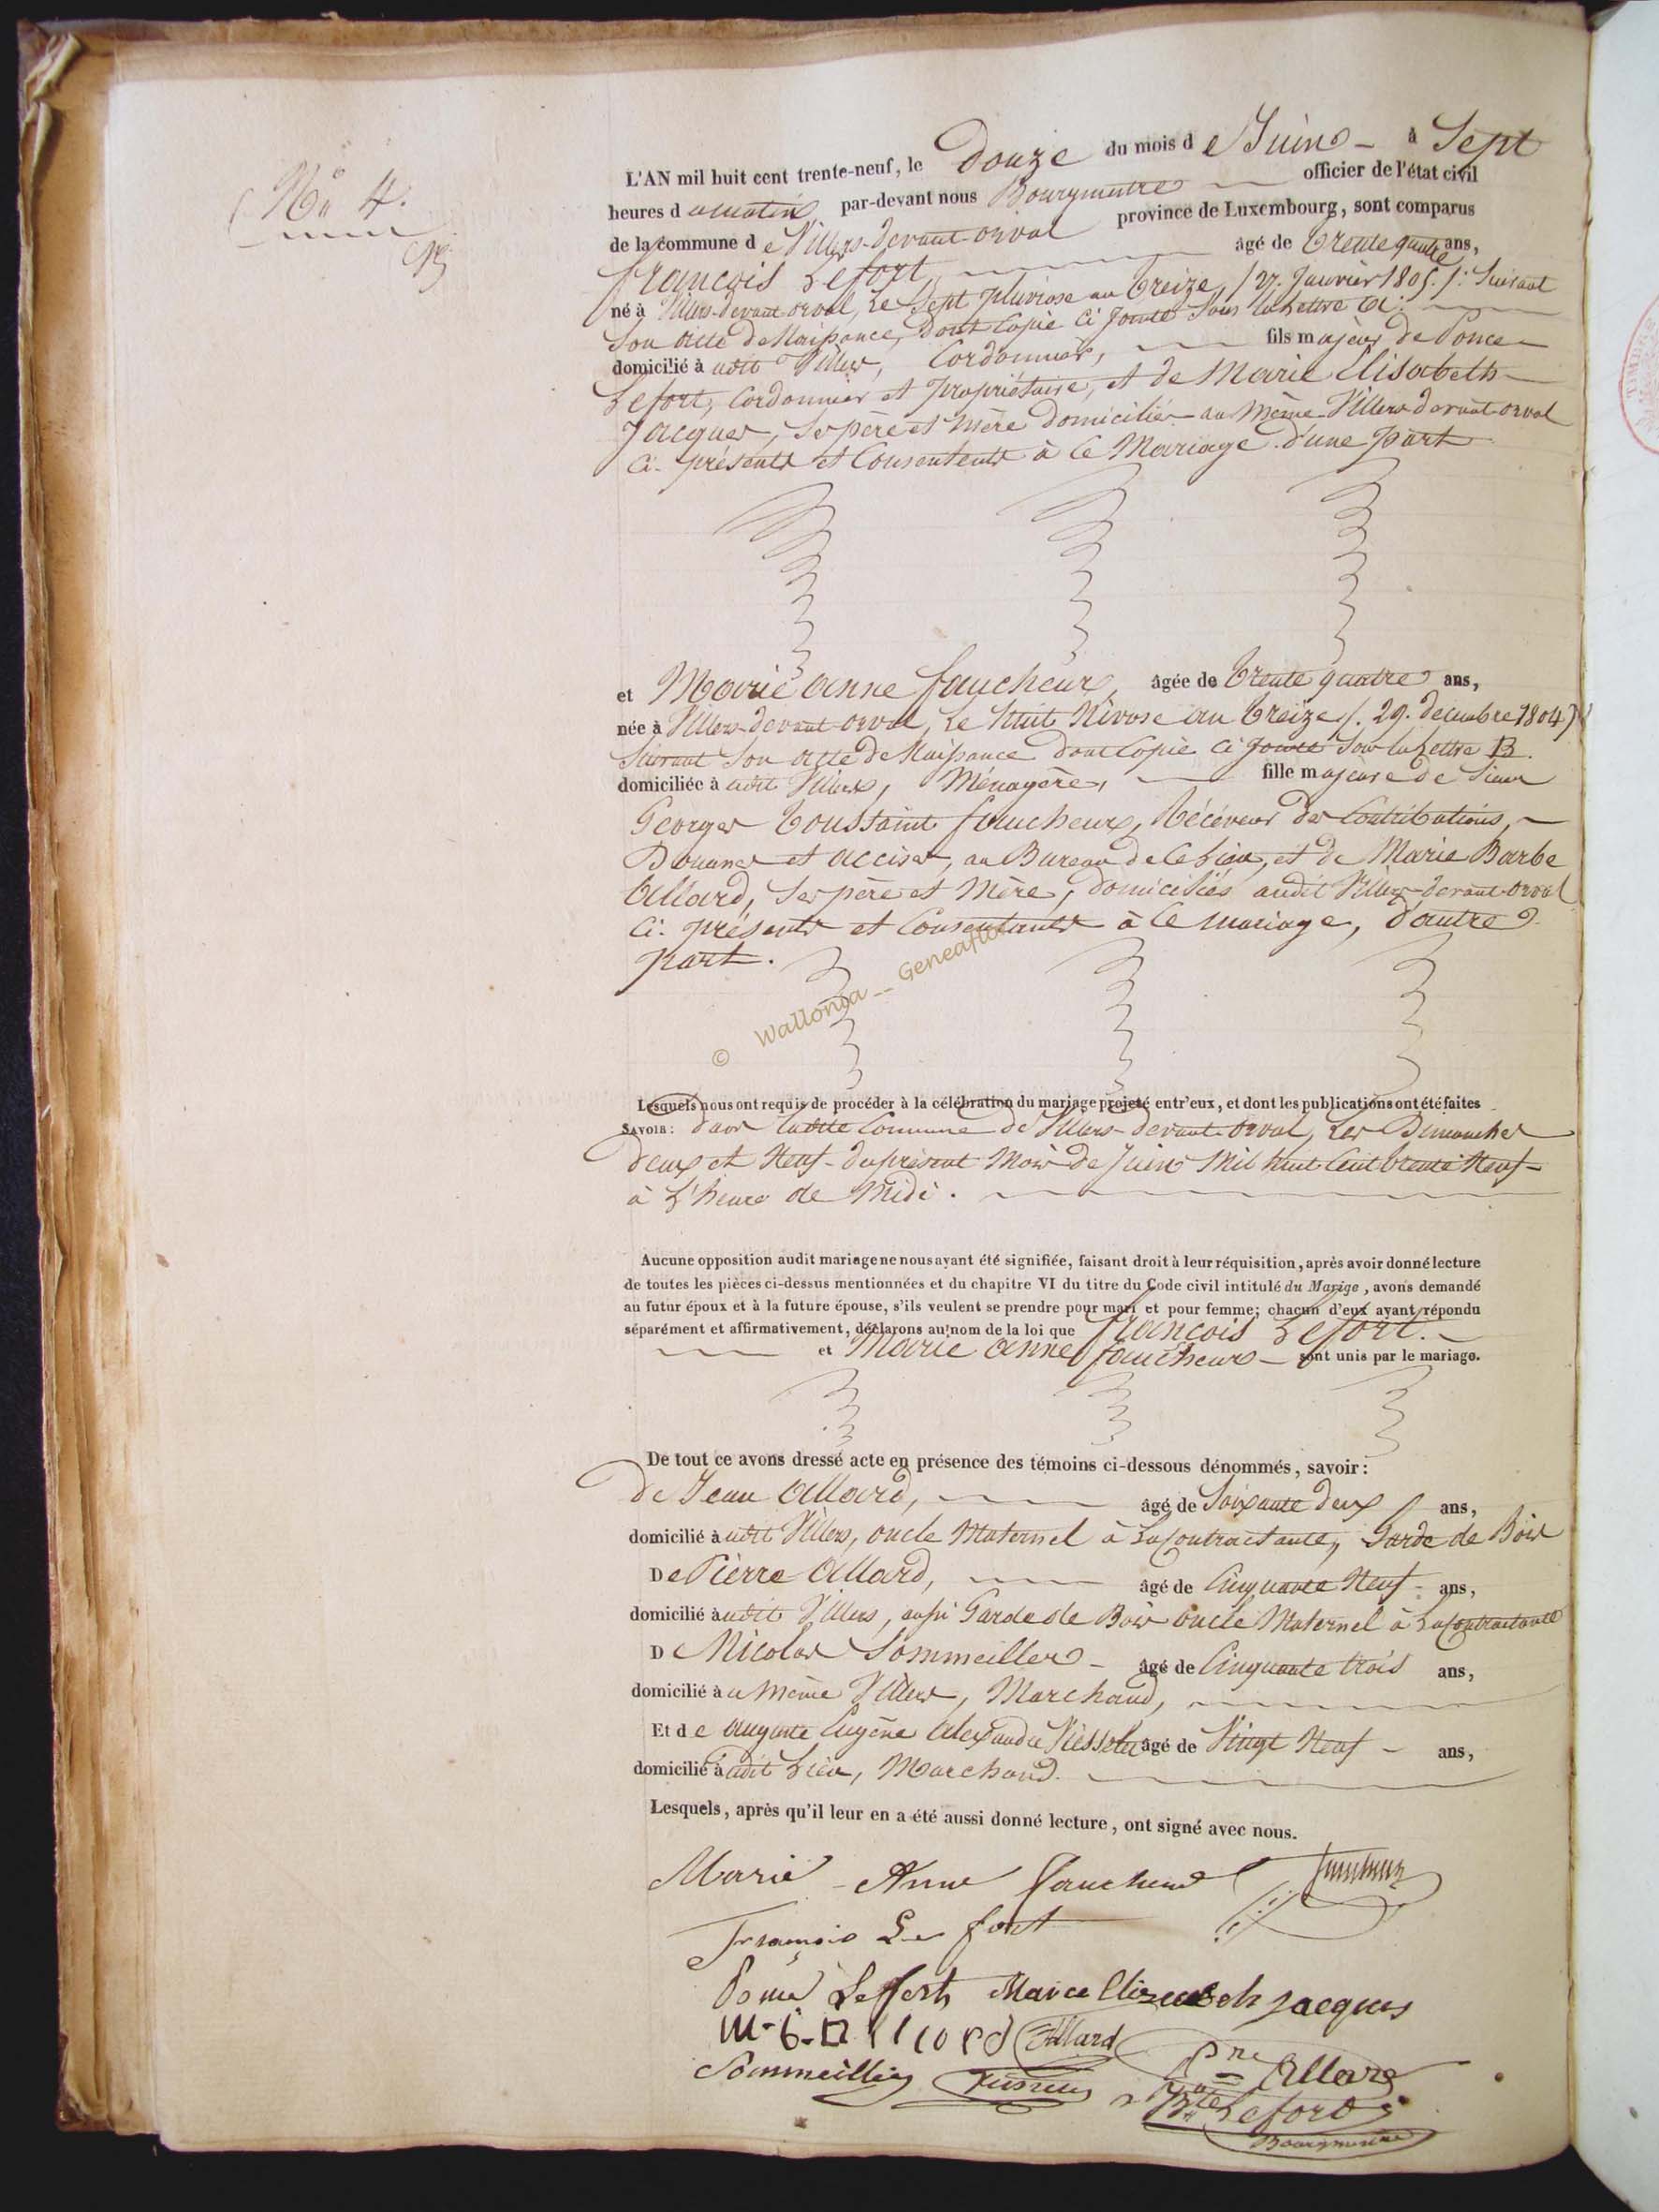 No 4.
L'AN mil huit cent trente-neuf, le Douze du mois de Juin - à Sept
heures du matin, par-devant nous Bourgmestre officier de l'état civil
de la commune de Villers-devant-orval province de Luxembourg, sont comparus
françois Lefort, âgé de trente quatre ans,
né à Villers-devant orval, Le Sept pluviose an treize, /: 27. Janvier 1805. /: Suivant
Son acte de Naissance, dont Copie ci jointe Sous la Lettre A:
domicilié à udit Villers, Cordonnier, fils majeur de Ponce
Lefort, Cordonnier et propriétaire, et de Marie Elisabeth
Jacques, Ses père et mère domiciliés au même Villers-devant-orval
Ci-présents et Consentents à Ce Mariage d'une part
et Marie anne faucheux, âgée de trente quatre ans,
née à Villers-devant-orval, Le huit Nivose an treize /. 29. decembre 1804)
Suivant Son acte de Naissance dont Copie ci jointe Sous la Lettre B.
domiciliée à udit Villers, Ménagère, fille majeure de Sieur
Georges toussaint faucheux, Récéveur des Contributions,
Douanes et accises, au Bureau de Ce Lieu, et de Marie Barbe
Allard, Ses père et Mère, domiciliés audit Villers-devant-orval
Ci-présents et Consentants à Ce mariage, d'autre
part.
© Wallonia -- Geneaflo
Lesquels nous ont requis de procéder à la célébration du mariage projeté entr'eux, et dont les publications ont été faites
SAVOIR: dans Ladite Commune de Villers-devant-orval, Les Dimanches
deux et Neuf du présent Mois de Juin Mil huit Cent trente Neuf
à L'heure de Midi.
Aucune opposition audit mariage ne nous ayant été signifiée, faisant droit à leur réquisition, après avoir donné lecture
de toutes les pièces ci-dessus mentionnées et du chapitre VI du titre du Code civil intitulé du Marige, avons demandé
au futur époux et à la future épouse, s'ils veulent se prendre pour mari et pour femme; chacun d'eux ayant répondu
séparément et affirmativement, déclarons au nom de la loi que françois Lefort.
et Marie anne faucheux - sont unis par le mariage.
De tout ce avons dressé acte en présence des témoins ci-dessous dénommés, savoir:
de Jean Allard, âgé de Soixante deux ans,
domicilié à udit Villers, oncle Maternel à La Contractante, Garde de Bois
De Pierre Allard, âgé de Cinquante Neuf - ans,
domicilié à udit Villers, aussi Garde de Bois oncle Maternel à La Contractante
De Nicolas Sommeiller - âgé de Cinquante trois ans,
domicilié à u même Villers, Marchand,
Et de auguste Eugène alexandre âgé de Vingt Neuf - ans,
domicilié à udit Lieu, Marchand.
Lesquels, après qu'il leur en a été aussi donné lecture, ont signé avec nous.
Marie - Anne faucheux
François Le fort
Ponce Lefort Marie Elizabeth Jacques
M-b-allard Allard
Sommeillier Pre Allard
Bte Lefort
Bourgmestre